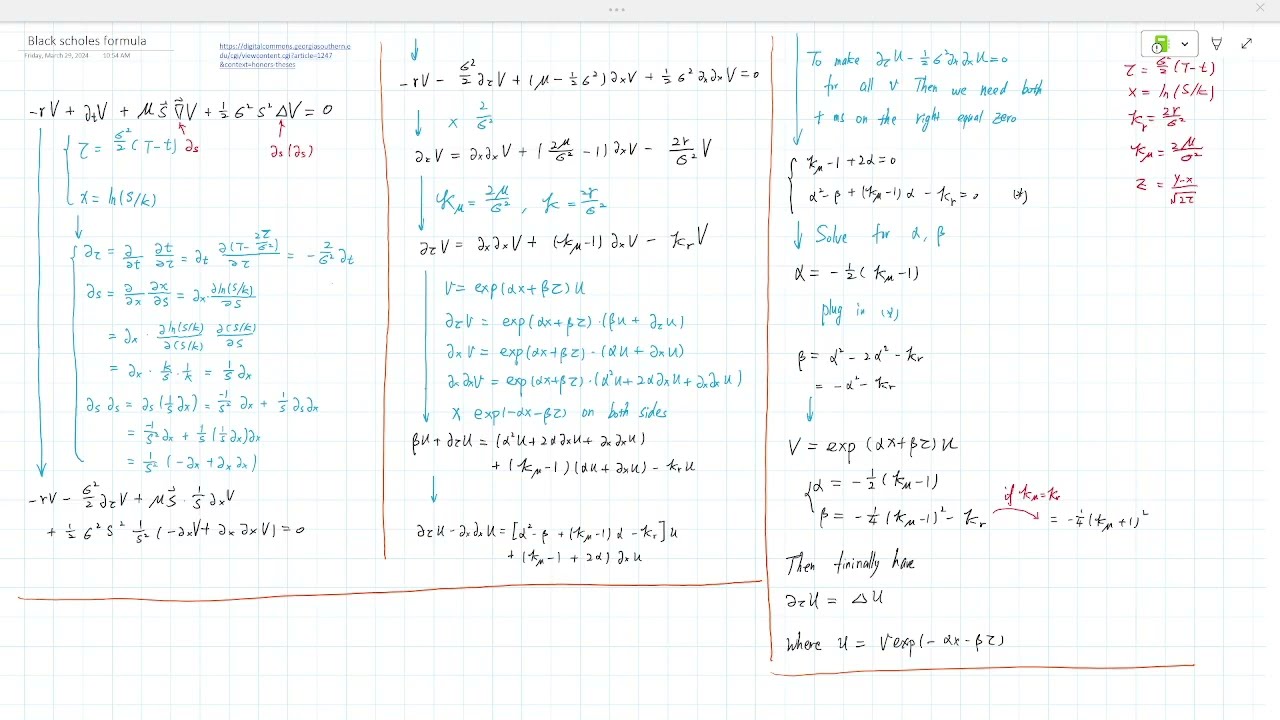 Black scholes formula
Friday, March 29, 2024 10:54 AM
https://digitalcommons.georgiasouthern.e
du/cgi/viewcontent.cgi?article=1247
&context=honors-theses
-rV + ∂tV + μS⃗ ∇⃗V + ½ σ² S² ΔV = 0
τ = σ²/2 (T-t)
∂s
∂s(∂s)
x = ln(S/k)
∂τ = ∂/∂t ∂t/∂τ = ∂t ∂(T - 2τ/σ²)/∂τ = - 2/σ² ∂t
∂s = ∂/∂x ∂x/∂s = ∂x · ∂ln(S/k)/∂S
= ∂x · ∂ln(S/k)/∂(S/k) ∂(S/k)/∂S
= ∂x · k/S · 1/k = 1/S ∂x
∂s ∂s = ∂s(1/S ∂x) = -1/S² ∂x + 1/S ∂s∂x
= -1/S² ∂x + 1/S (1/S ∂x)∂x
= 1/S² (-∂x + ∂x∂x)
-rV - σ²/2 ∂τV + μS⃗ · 1/S ∂xV
+ ½ σ² S² 1/S² (-∂xV + ∂x ∂xV) = 0
-rV - σ²/2 ∂τV + (μ - ½σ²) ∂xV + ½ σ² ∂x∂xV = 0
× 2/σ²
∂τV = ∂x∂xV + (2μ/σ² - 1) ∂xV - 2r/σ² V
kμ = 2μ/σ² , k = 2r/σ²
∂τV = ∂x∂xV + (kμ-1) ∂xV - krV
V = exp(αx+βτ) u
∂τV = exp(αx+βτ)·(βu + ∂τu)
∂xV = exp(αx+βτ)·(αu + ∂xu)
∂x∂xV = exp(αx+βτ)·(α²u + 2α∂xu + ∂x∂xu)
× exp(-αx-βτ) on both sides
βu + ∂τu = (α²u + 2α∂xu + ∂x∂xu)
+ (kμ-1)(αu + ∂xu) - kru
∂τu - ∂x∂xu = [α² - β + (kμ-1)α - kr] u
+ (kμ-1 + 2α) ∂xu
To make ∂τu - ½σ²∂x∂xu = 0
for all V Then we need both
t ms on the right equal zero
kμ - 1 + 2α = 0
α² - β + (kμ-1) α - kr = 0 (*)
Solve for α, β
α = - ½ (kμ-1)
plug in (*)
β = α² - 2α² - kr
= -α² - kr
V = exp (αx+βτ) u
α = - ½ (kμ-1)
β = - ¼ (kμ-1)² - kr
if kμ=kr
= - ¼ (kμ+1)²
Then fininally have
∂τu = Δu
where u = V exp(-αx-βτ)
τ = σ²/2 (T-t)
x = ln(S/k)
kr = 2r/σ²
kμ = 2μ/σ²
z = y-x/√2τ